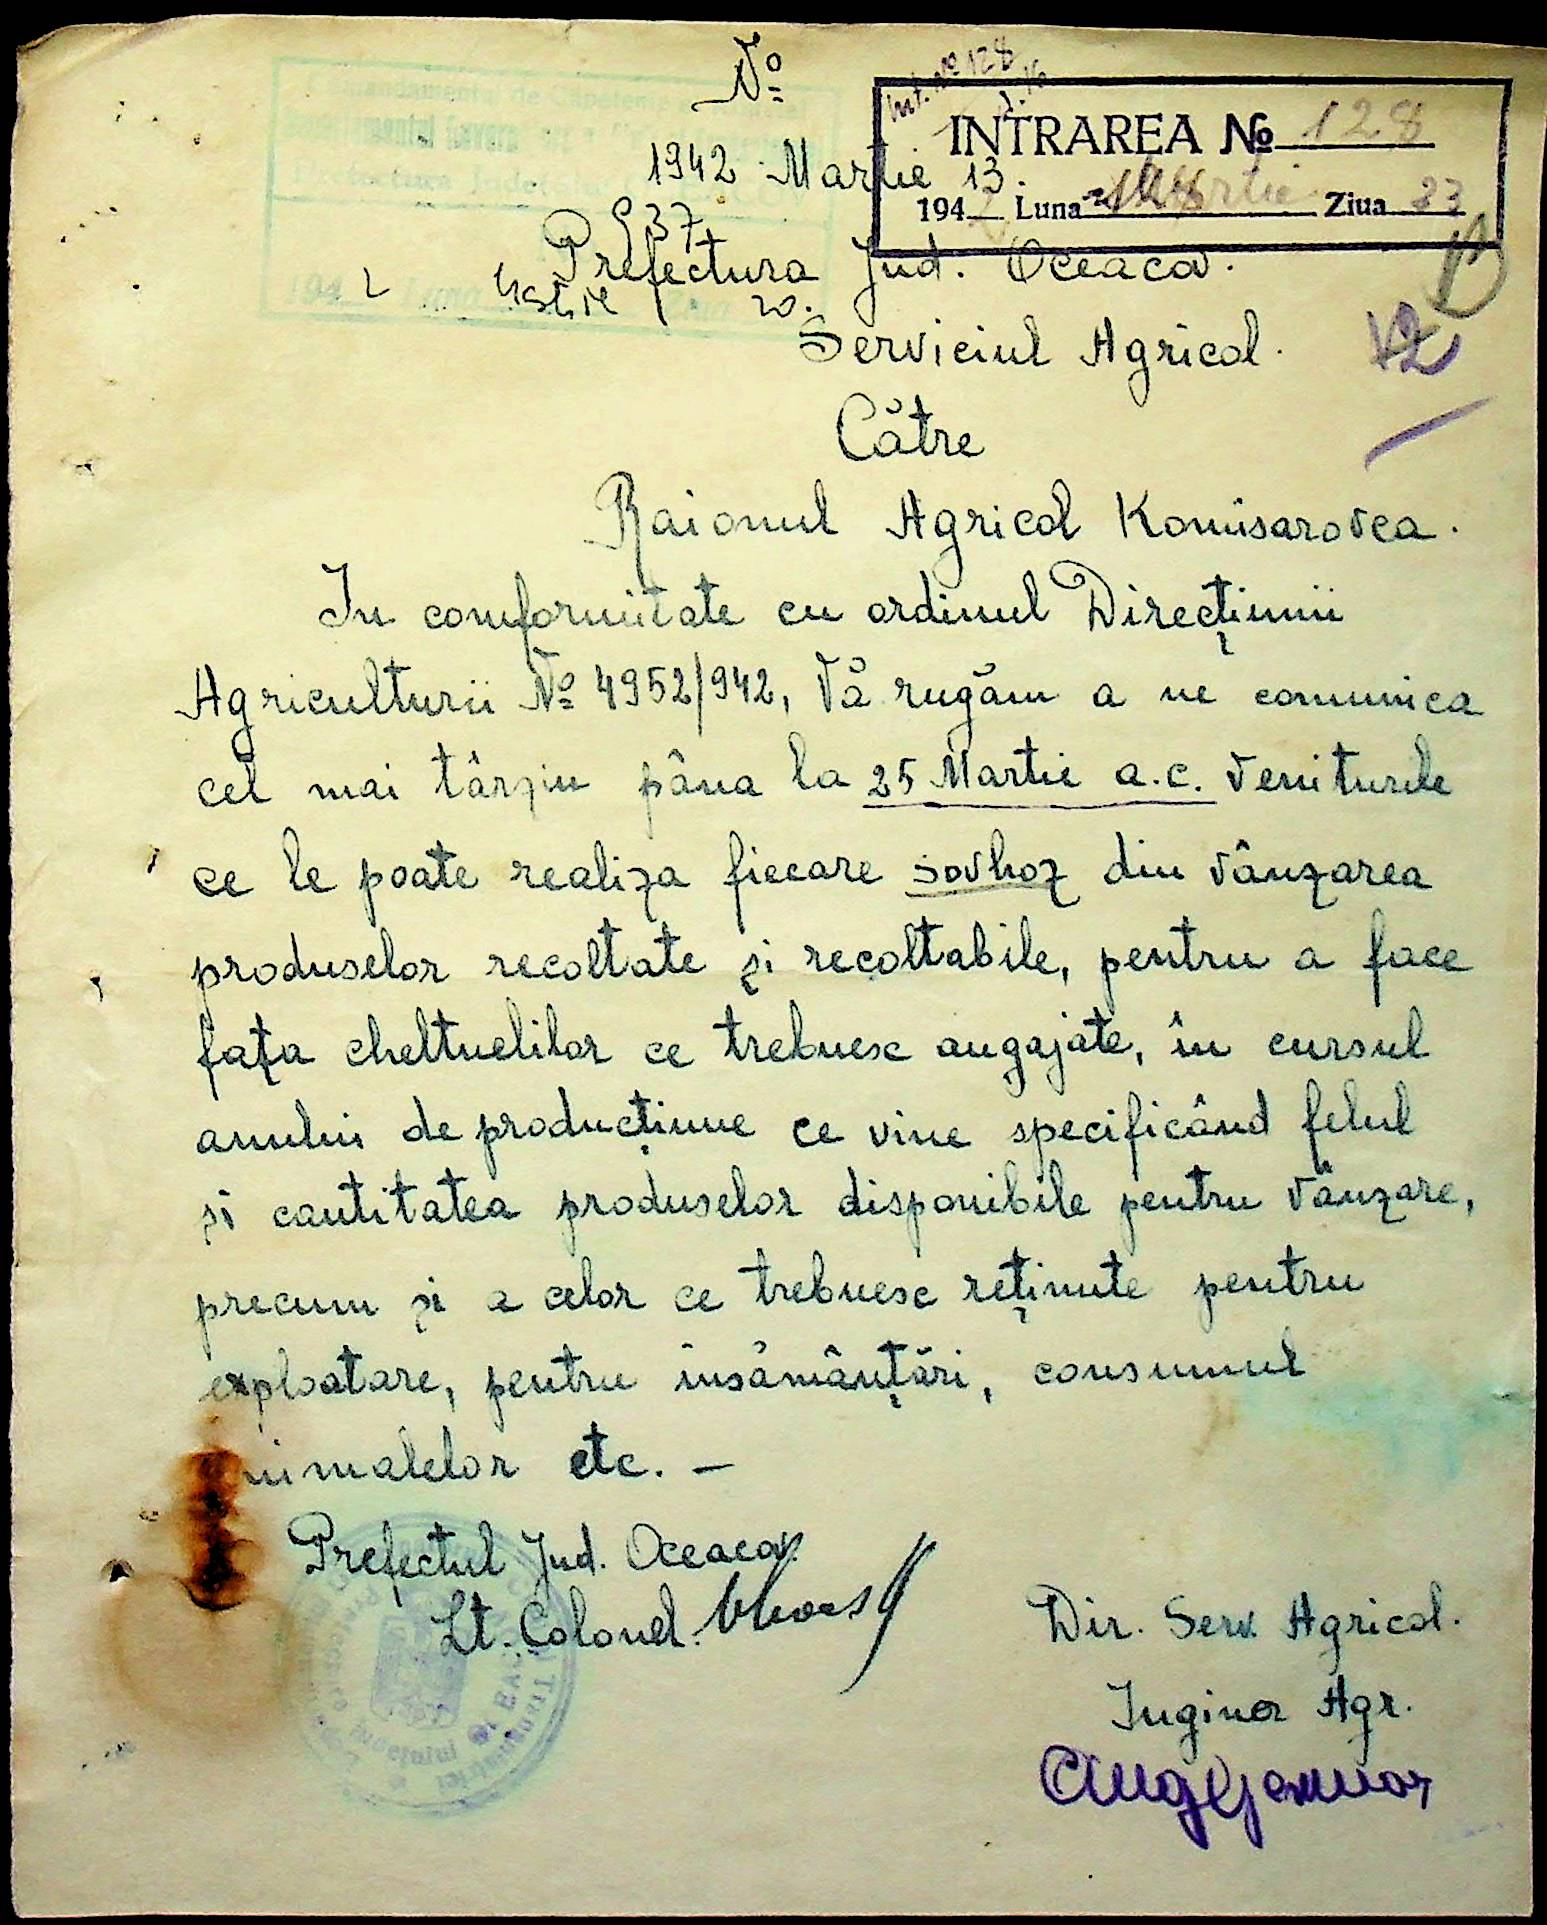 No
Int. No 128
INTRAREA No 128
1942 Martie 13.
194 Luna Martie Ziua 23
937
Prefectura Jud. Oceacov.
194 2 Luna Ziua 20.
Serviciul Agricol.
12
Către
Raionul Agricol Komisarovca.
In conformitate cu ordinul Direcțiunii
Agriculturii No 4952/942, Vă rugăm a ne comunica
cel mai târziu până la 25 Martie a.c. veniturile
ce le poate realiza fiecare sovhoz din vânzarea
produselor recoltate și recoltabile, pentru a face
fața cheltuelilor ce trebuesc angajate, în cursul
anului de producțiune ce vine specificând felul
și cantitatea produselor disponibile pentru vânzare,
precum și a celor ce trebuesc reținute pentru
exploatare, pentru însămânțări, consumul
animalelor etc. –
Prefectul Jud. Oceacov.
Lt. Colonel.
Dir. Serv. Agricol.
Inginer Agr.